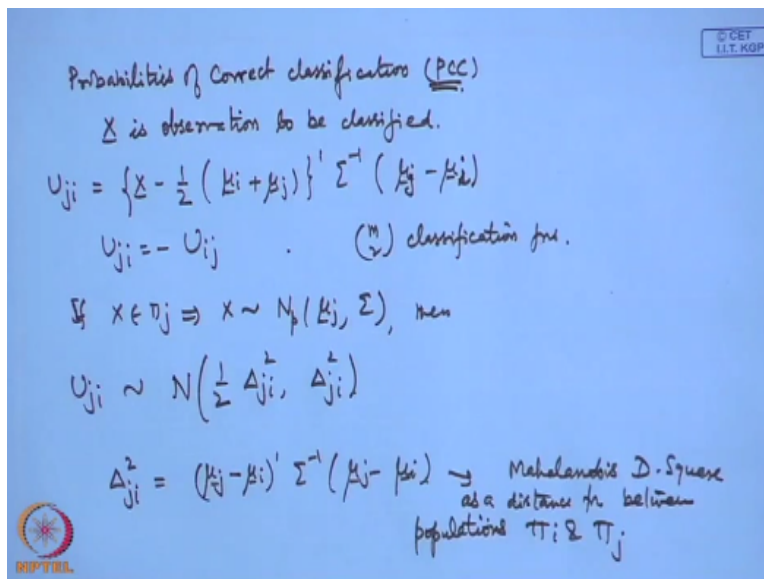 © CET
I.I.T. KGP
Probabilities of Correct classification (PCC)
X is observation to be classified.
U_ji = {X - 1/2 (μi + μj)}' Σ^-1 (μj - μi)
U_ji = - U_ij . (m 2) classification fns.
If X ∈ πj ⇒ X ~ Np(μj, Σ), then
U_ji ~ N(1/2 Δ²_ji, Δ²_ji)
Δ²_ji = (μj - μi)' Σ^-1 (μj - μi) → Mahalanobis D-Square
as a distance fn between
populations πi & πj
NPTEL